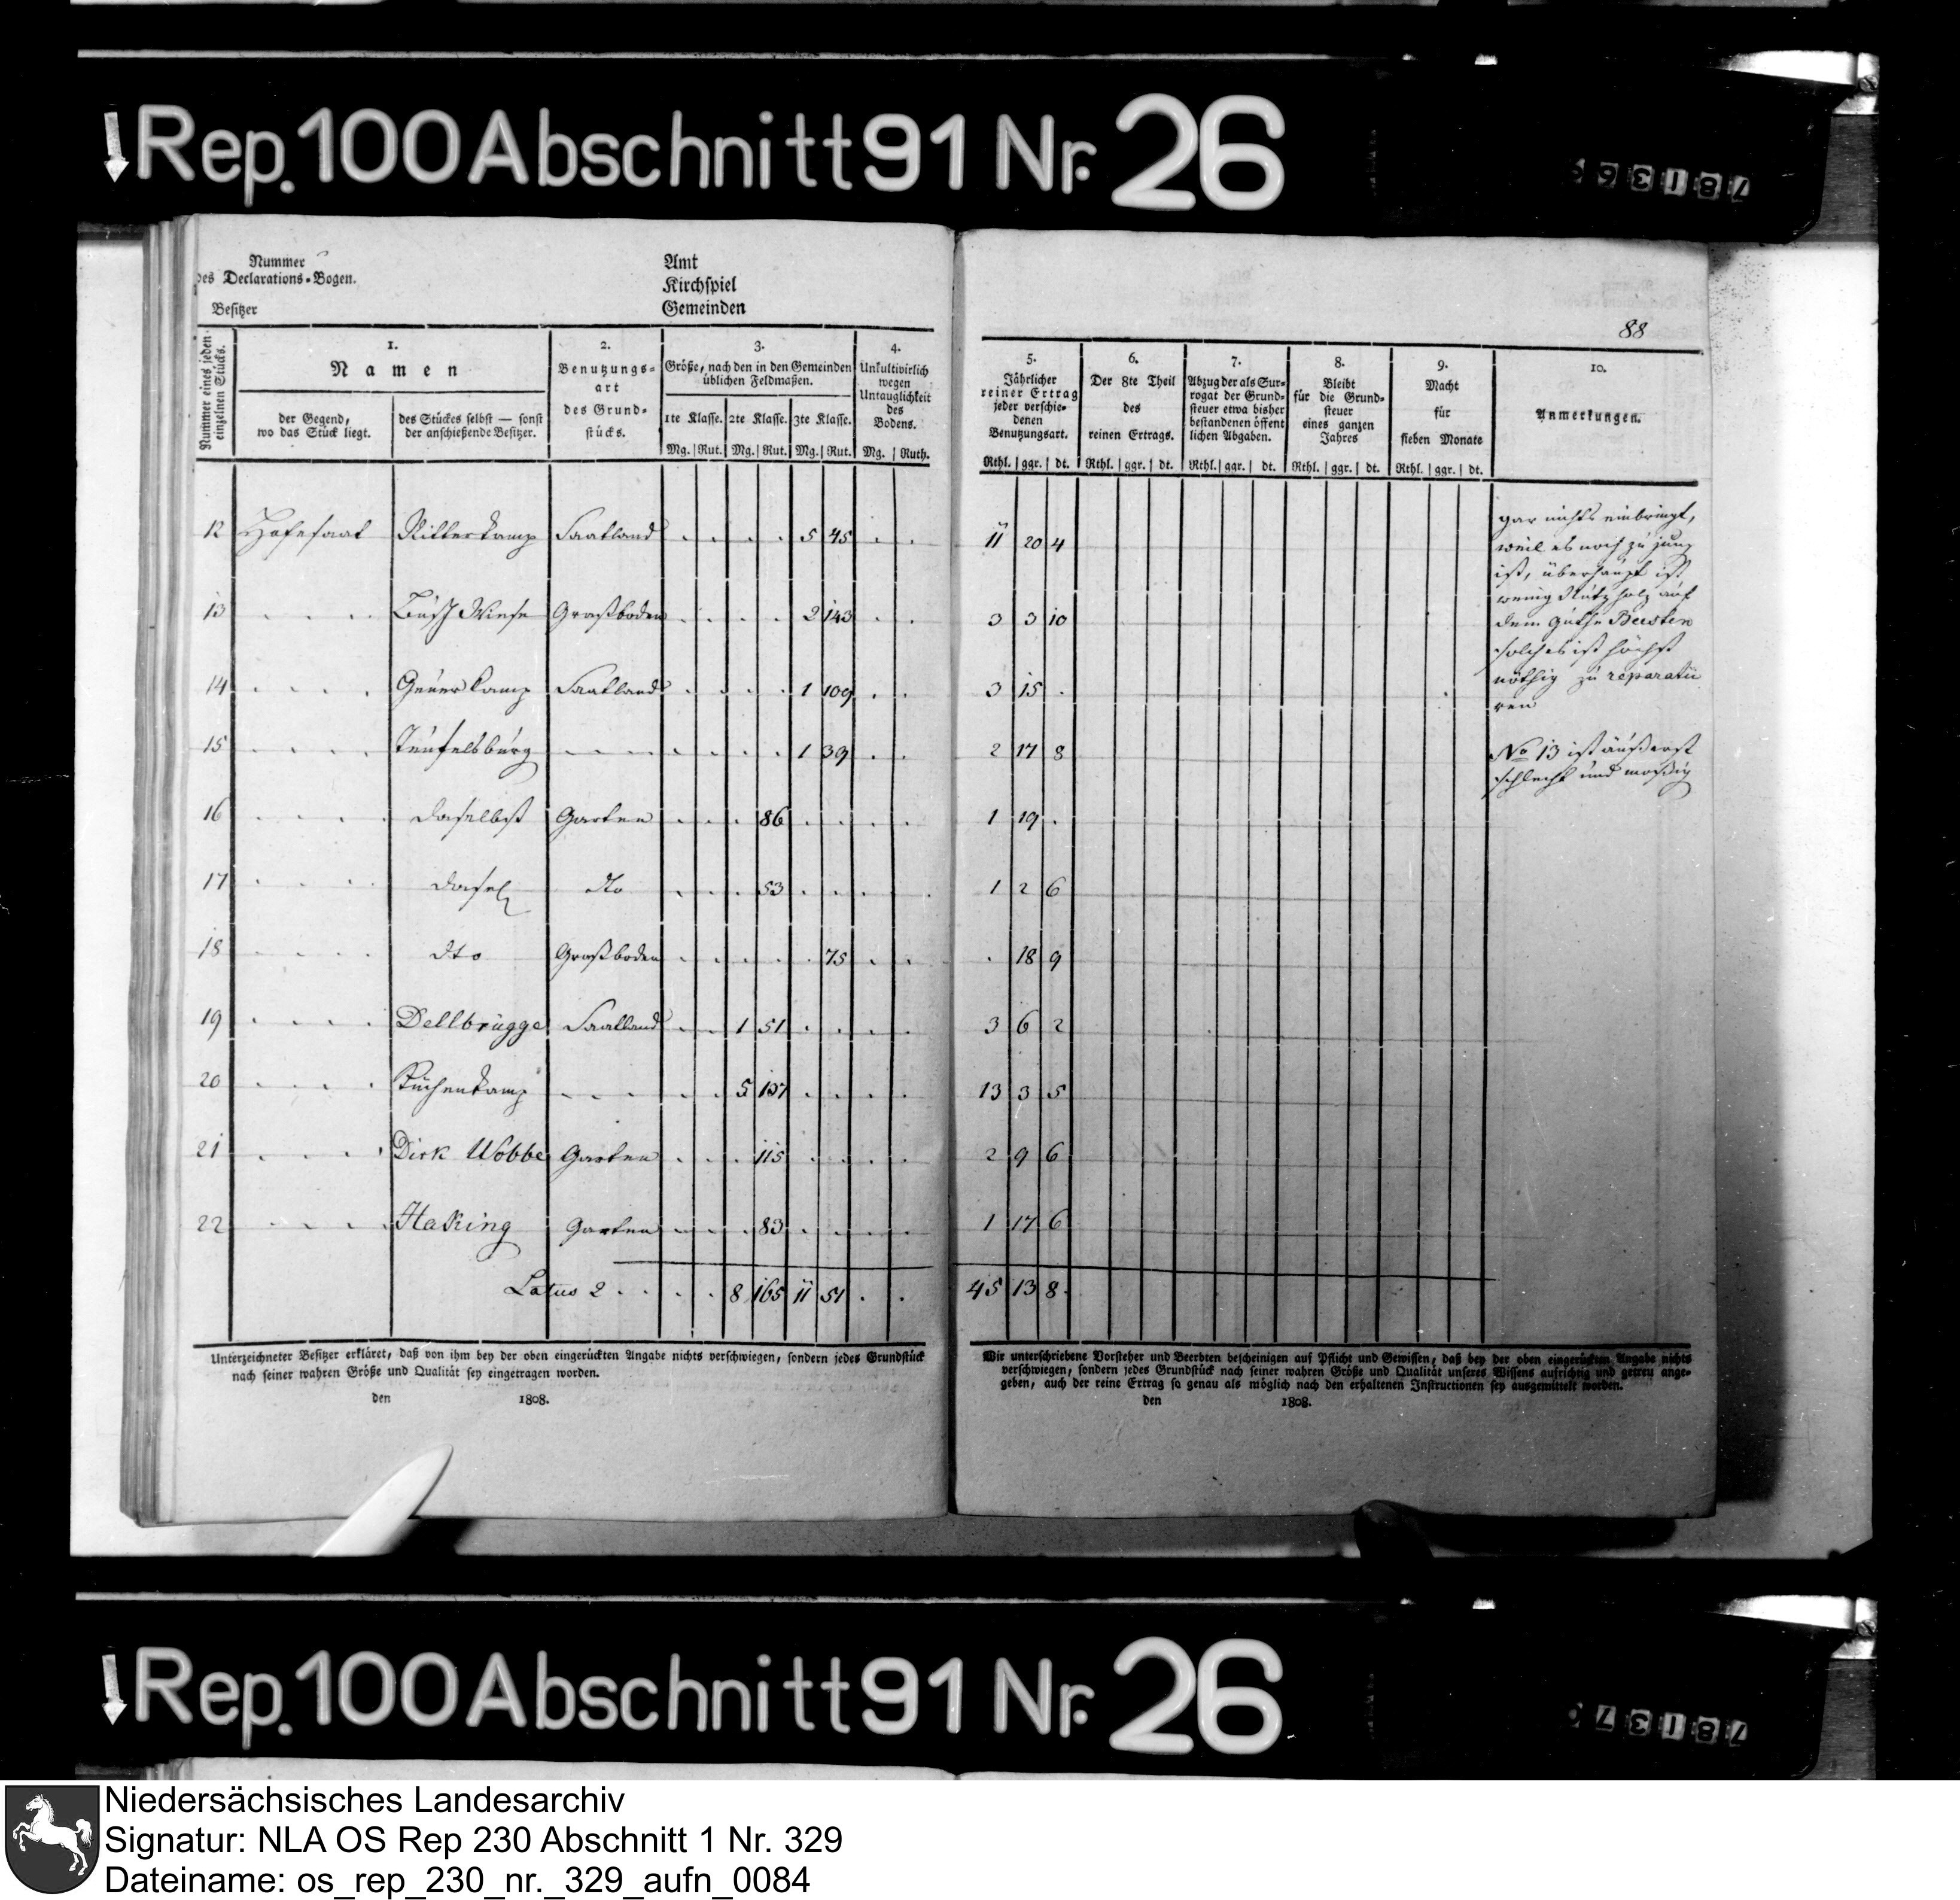 Rep. 100 Abschnitt 91 Nr. 26
78136
Nummer
des Declarations-Bogen.
Besitzer
Amt
Kirchspiel
Gemeinden
88
Nummer eines jeden einzelnen Stücks.
1.
Namen
der Gegend,
wo das Stück liegt.
des Stückes selbst — sonst
der anschießende Besitzer.
2.
Benutzungs-
art
des Grund-
stücks.
3.
Größe, nach den in den Gemeinden
üblichen Feldmaßen.
1te Klasse. 2te Klasse. 3te Klasse.
Mg. Rut. Mg. Rut. Mg. Rut.
4.
Unkultivirlich
wegen
Untauglichkeit
des
Bodens.
Mg. Ruth.
5.
Jährlicher
reiner Ertrag
jeder verschie-
denen
Benutzungsart.
Rthl. ggr. dt.
6.
Der 8te Theil
des
reinen Ertrags.
Rthl. ggr. dt.
7.
Abzug der als Sur-
rogat der Grund-
steuer etwa bisher
bestandenen öffent
lichen Abgaben.
Rthl. ggr. dt.
8.
Bleibt
für die Grund-
steuer
eines ganzen
Jahres
Rthl. ggr. dt.
9.
Macht
für
sieben Monate
Rthl. ggr. dt.
10.
Anmerkungen.
12 Hofesaat Ritterkamp Saatland 5 45 11 20 4
13 Wiese Graßboden 2 143 3 3 10
14 kamp Saatland 1 109 3 15
15 Teufelsburg 1 39 2 17 8
16 daselbst Garten 86 1 19
17 dasel dto 53 1 2 6
18 dto Graßboden 75 18 9
19 Dellbrügge Saatland 1 51 3 6 2
20 Küchenkamp 5 137 13 3 5
21 Dirk Wobbe Garten 115 2 9 6
22 Haking Garten 83 1 17 6
Latus 2 8 165 11 51 45 13 8
gar nichts einbringt,
weil es noch zu jung
ist, überhaupt ist
wenig Nutzholz auf
dem Guthe Beesten
solches ist höchst
nöthig zu reparatü
ren
No 13 ist äußerst
schlecht und moßig
Unterzeichneter Besitzer erkläret, daß von ihm bey der oben eingerückten Angabe nichts verschwiegen, sondern jedes Grundstück
nach seiner wahren Größe und Qualität sey eingetragen worden.
den 1808.
Wir unterschriebene Vorsteher und Beerbten bescheinigen auf Pflicht und Gewissen, daß bey der oben eingerückten Angabe nichts
verschwiegen, sondern jedes Grundstück nach seiner wahren Größe und Qualität unseres Wissens aufrichtig und getreu ange-
geben, auch der reine Ertrag so genau als möglich nach den erhaltenen Instructionen sey ausgemittelt worden.
den 1808.
Rep. 100 Abschnitt 91 Nr. 26
78137
Niedersächsisches Landesarchiv
Signatur: NLA OS Rep 230 Abschnitt 1 Nr. 329
Dateiname: os_rep_230_nr._329_aufn_0084